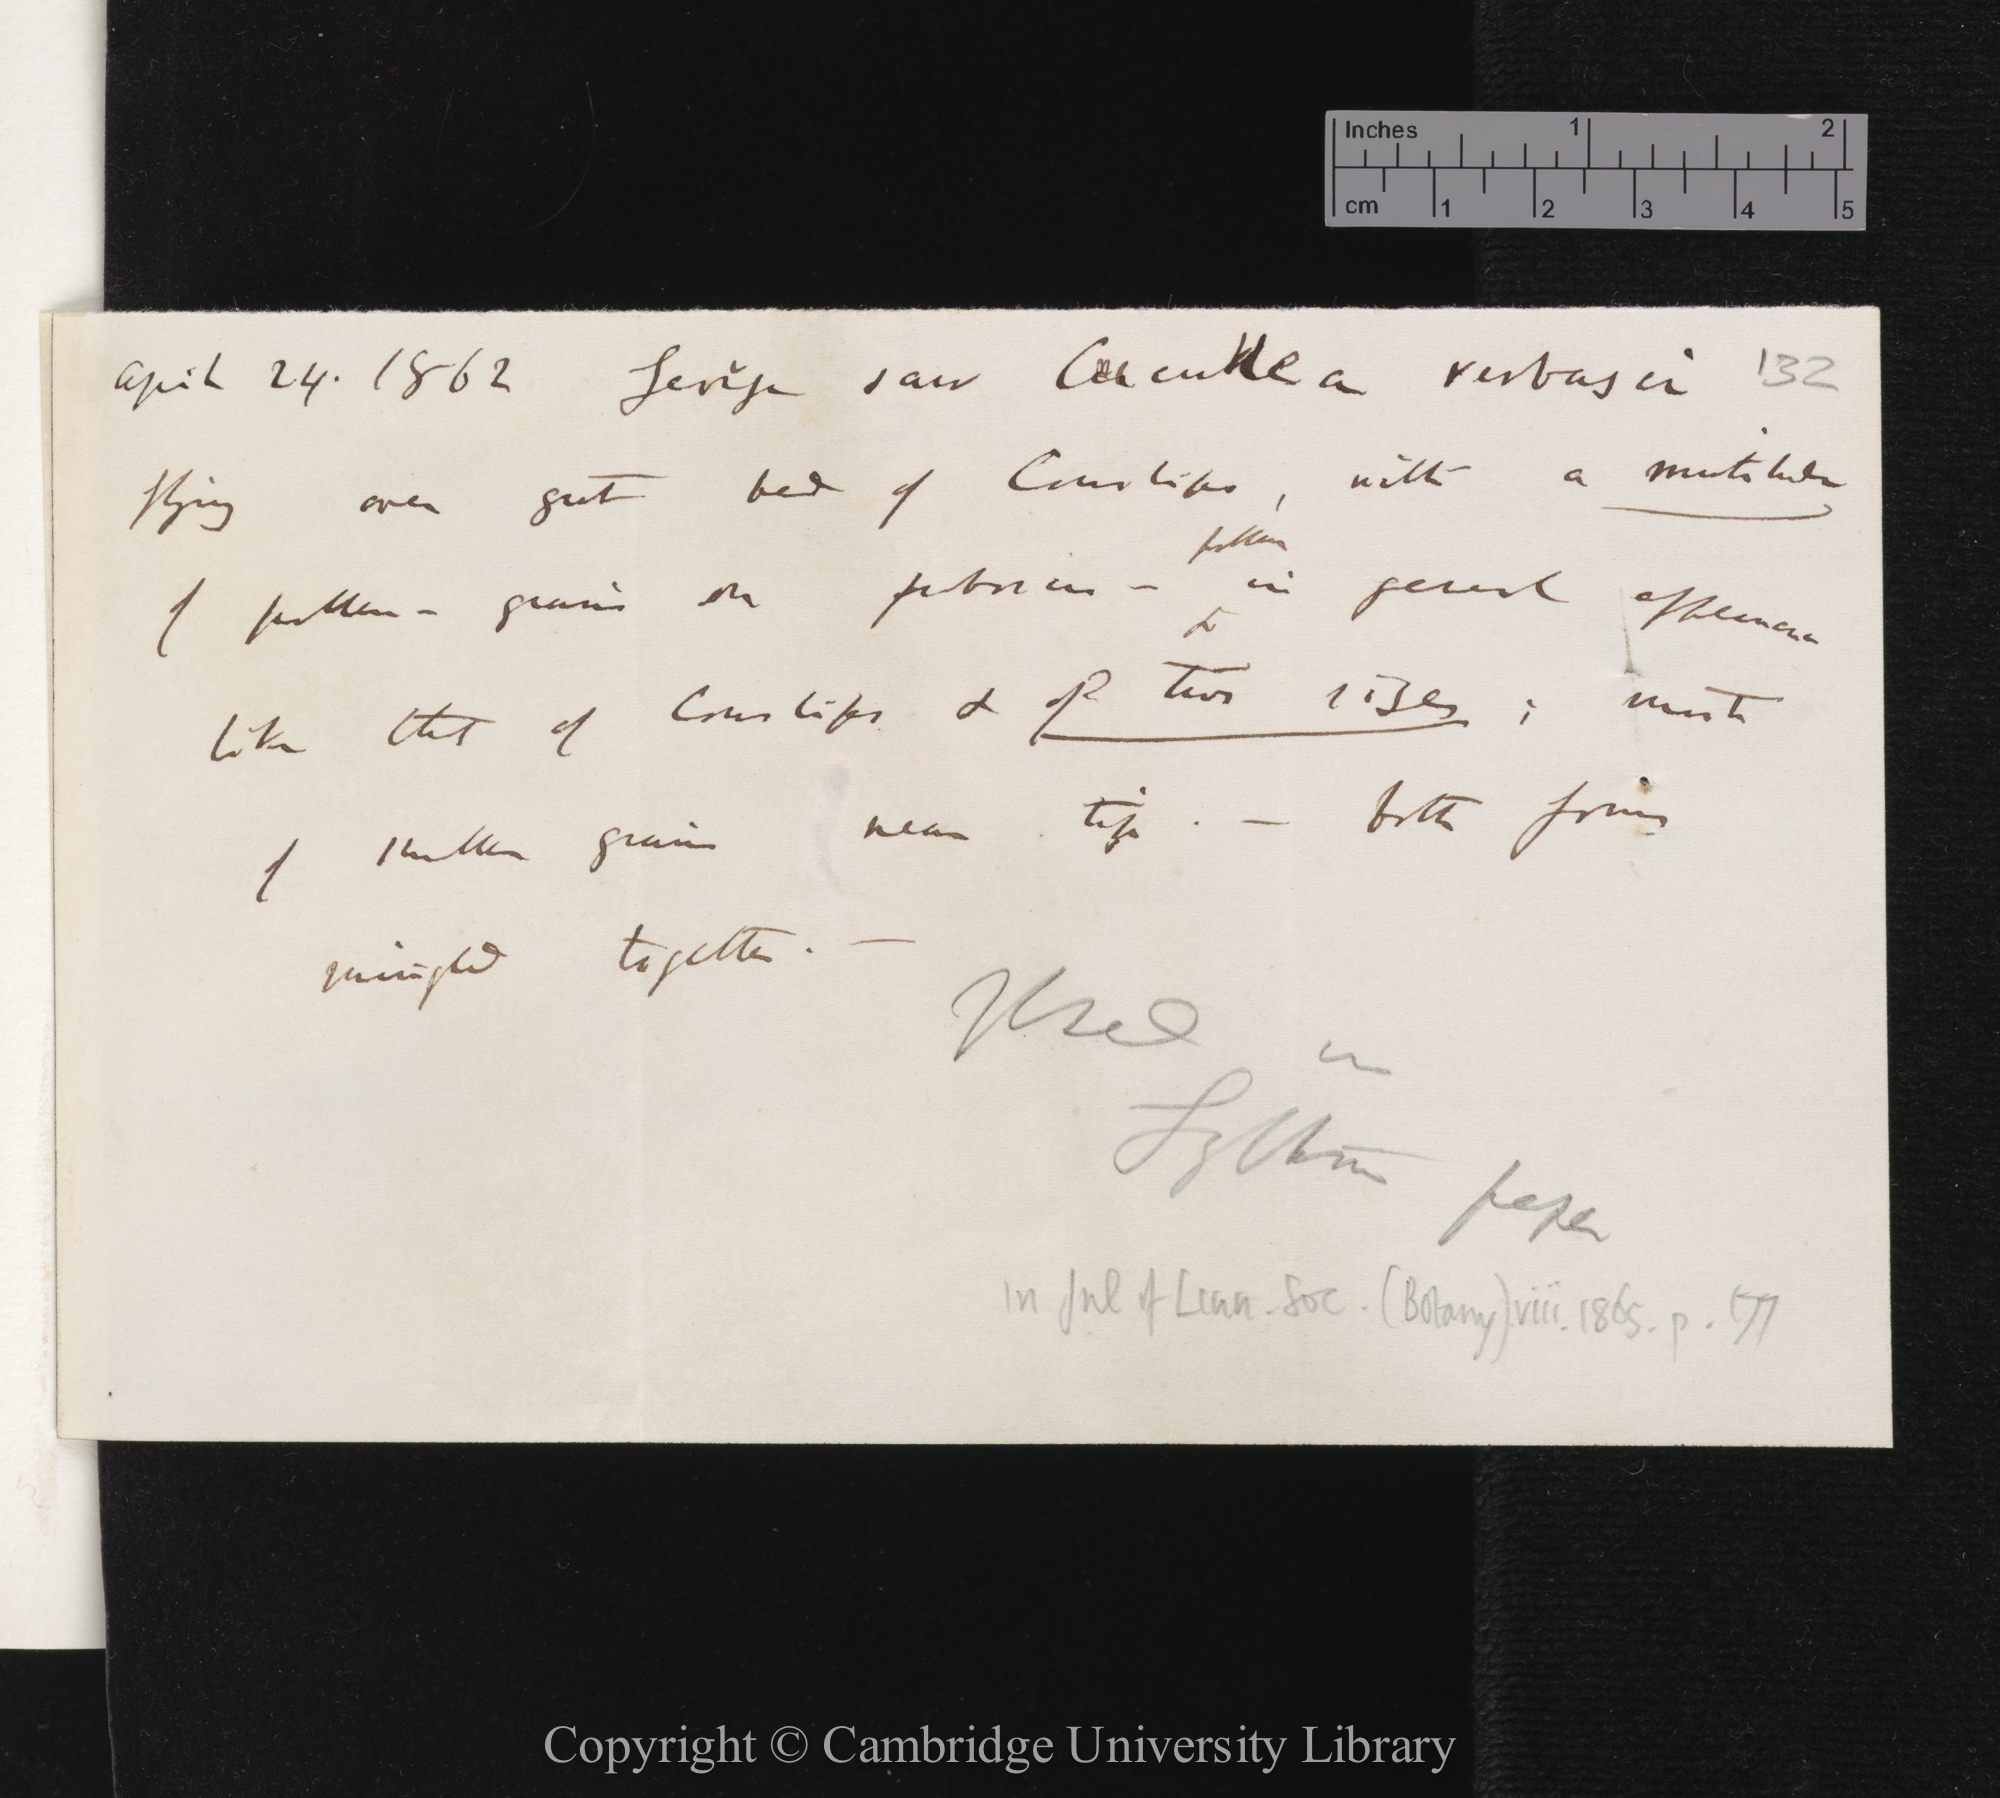 Inches 1 2
cm 1 2 3 4 5
April 24. 1862 George saw Cucullia verbasci 132
flying over great bed of Cowslips, with a multitude
pollen
of pollen-grains on proboscis — in general appearance
&
like that of Cowslips & of two sizes; most
of smaller grains near tip. — both forms
mingled together. —
Used in
Lythrum paper
in Jnl of Linn. Soc. (Botany) viii. 1865. p.
Copyright © Cambridge University Library